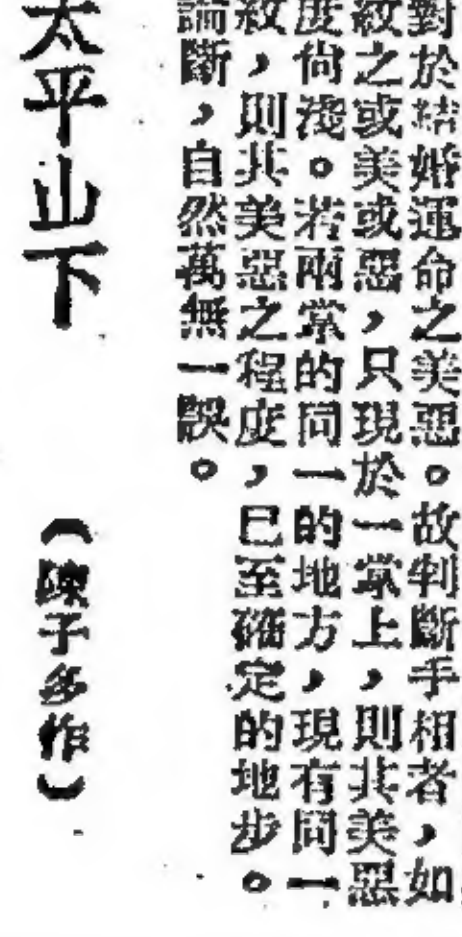 對於結婚運命之美惡。故判斷手相者，如
紋之或美或惡，只現於一掌上，則其美惡
度尙淺。若兩掌的同一的地方，現有同一
紋，則其美惡之程度，已至確定的地步。
論斷，自然萬無一誤。
太平山下
（陳子多作）